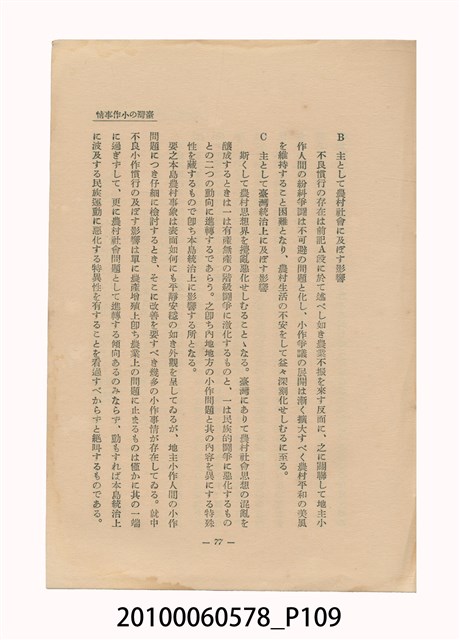 臺灣の小作事情
B 主として農村社會に及ぼす影響
不良慣行の存在は前記A段に於て述べし如き農業不振を來す反面に、之に關聯して地主小
作人間の紛糾爭鬪は不可避の問題と化し、小作爭議の展開は漸く擴大すべく農村平和の美風
を維持すること困難となり、農村生活の不安をして益々深刻化せしむるに至る。
C 主として臺灣統治上に及ぼす影響
斯くして農村思想界を攪亂惡化せしむることゝなる。臺灣にありて農村社會思想の混亂を
釀成するときは一は有産無産の階級鬪爭に激化するものと、一は民族的鬪爭に惡化するもの
との二つの動向に進轉するであらう。之卽ち內地地方の小作問題と其の內容を異にする特殊
性を藏するもので卽ち本島統治上に影響する所となる。
要之本島農村事象は表面如何にも平靜安穩の如き外觀を呈してゐるが、地主小作人間の小作
問題につき仔細に檢討するとき、そこに改善を要すべき幾多の小作事情が存在してゐる。就中
不良小作慣行の及ぼす影響は單に農産增殖上卽ち農業上の問題に止まるものは僅かに其の一端
に過ぎずして、更に農村社會問題として進轉する傾向あるのみならず、動もすれば本島統治上
に波及する民族運動に惡化する特異性を有することを看過すべからずと絕叫するものである。
— 77 —
20100060578_P109